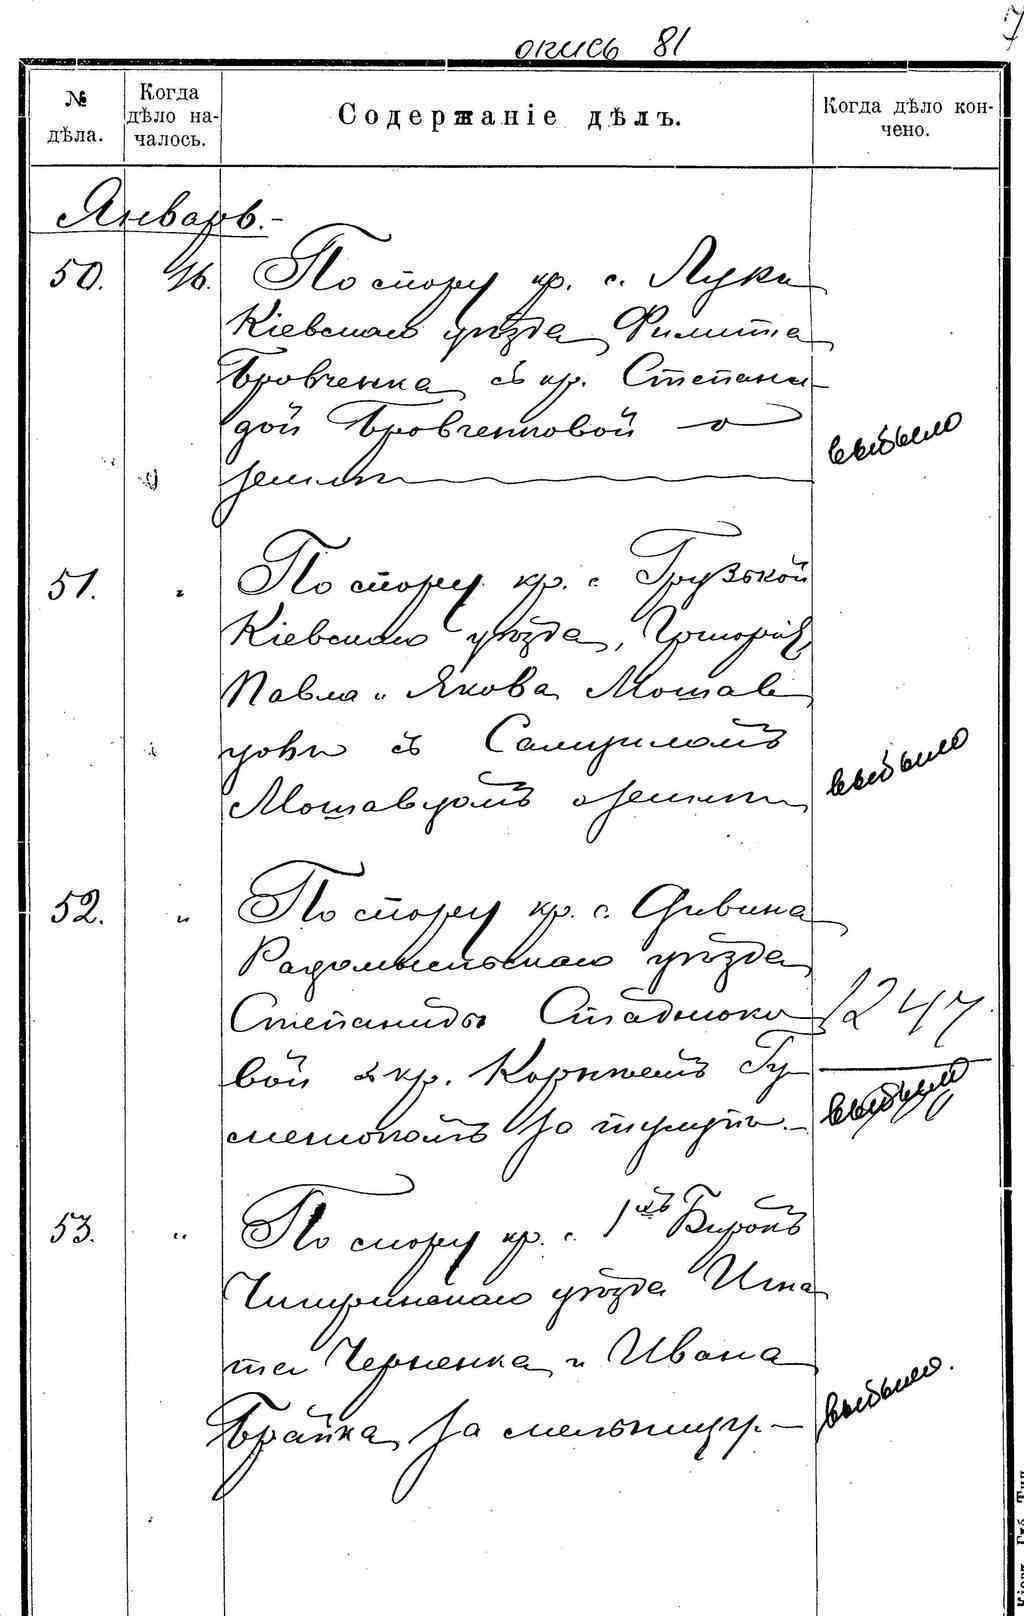 опись 81
7
№ дѣла.
Когда дѣло началось.
Содержаніе дѣлъ.
Когда дѣло кончено.
Январь.-
50. 16. По спору кр. с. Луки
Кіевскаго уѣзда Филиппа
Бровченка съ кр. Степани-
дой Бровченковой о
землѣ
выбыло
51. " По спору кр. с. Грузской
Кіевскаго уѣзда, Григорія,
Павла и Якова Мошав
цовъ съ Самуиломъ
Мошавцомъ о землѣ
выбыло
52. " По спору кр. с. Дивина
Радомысльскаго уѣзда
Степаниды Стаднюко
вой съ кр. Корнѣемъ Гу
менюкомъ за тулупъ.-
1247
выбыло
53. " По спору кр. с. 1хъ Бирокъ
Чигиринскаго уѣзда Игна
та Черненка и Ивана
Брайка за мельницу.-
выбыло.